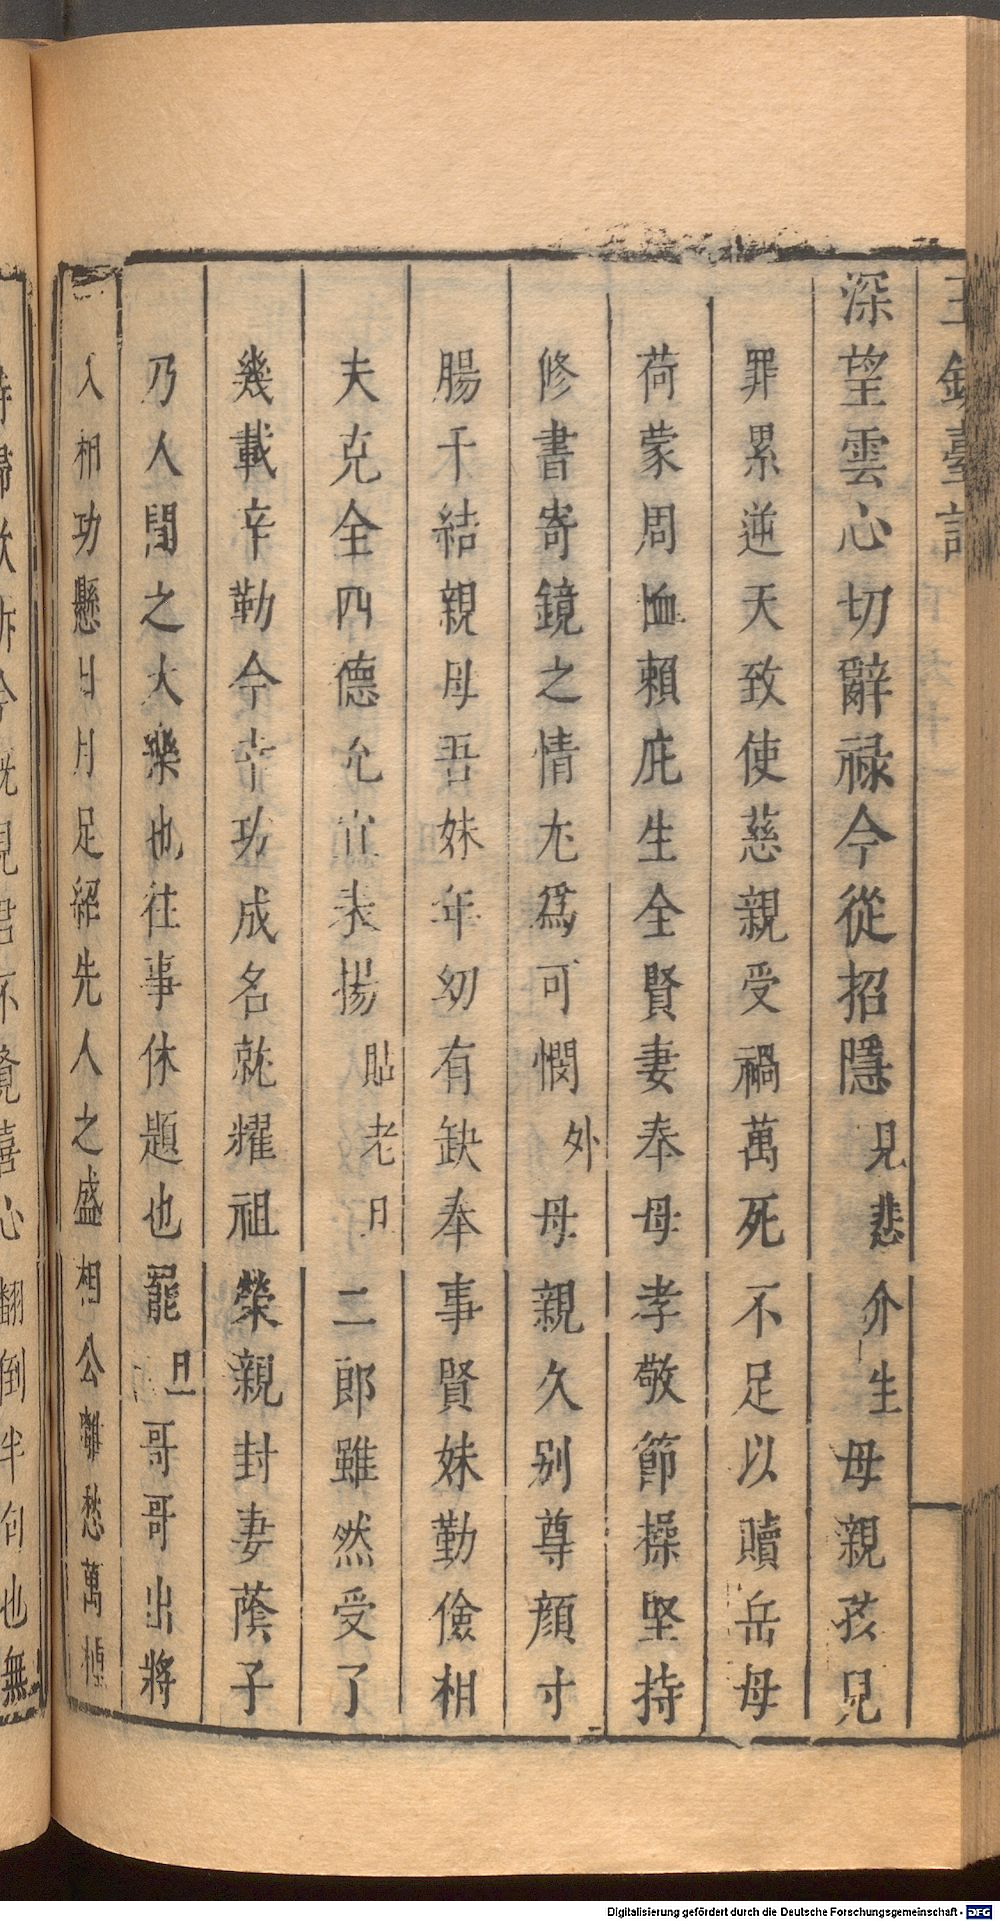 玉鏡臺記
深望雲心切辭祿今從招隱見悲介生母親孩兒
罪累逆天致使慈親受禍萬死不足以贖岳母
荷蒙周恤賴庇生全賢妻奉母孝敬節操堅持
修書寄鏡之情尤爲可憫外母親久別尊顔寸
腸千結親母吾妹年幼有缺奉事賢妹勤儉相
夫克全四德允宜表揚貼老日二郎雖然受了
幾載辛勤今幸功成名就耀祖榮親封妻蔭子
乃人間之大樂也往事休題也罷旦哥哥出將
入相功懸日月足紹先人之盛相公離愁萬
Digitalisierung gefördert durch die Deutsche Forschungsgemeinschaft - DFG